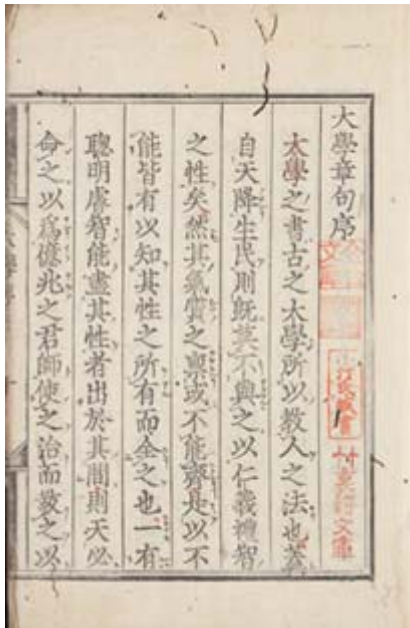 大學章句序
大學之書古之大學所以敎人之法也蓋
自天降生民則旣莫不與之以仁義禮智
之性矣然其氣質之稟或不能齊是以不
能皆有以知其性之所有而全之也一有
聰明睿智能盡其性者出於其間則天必
命之以爲億兆之君師使之治而敎之以